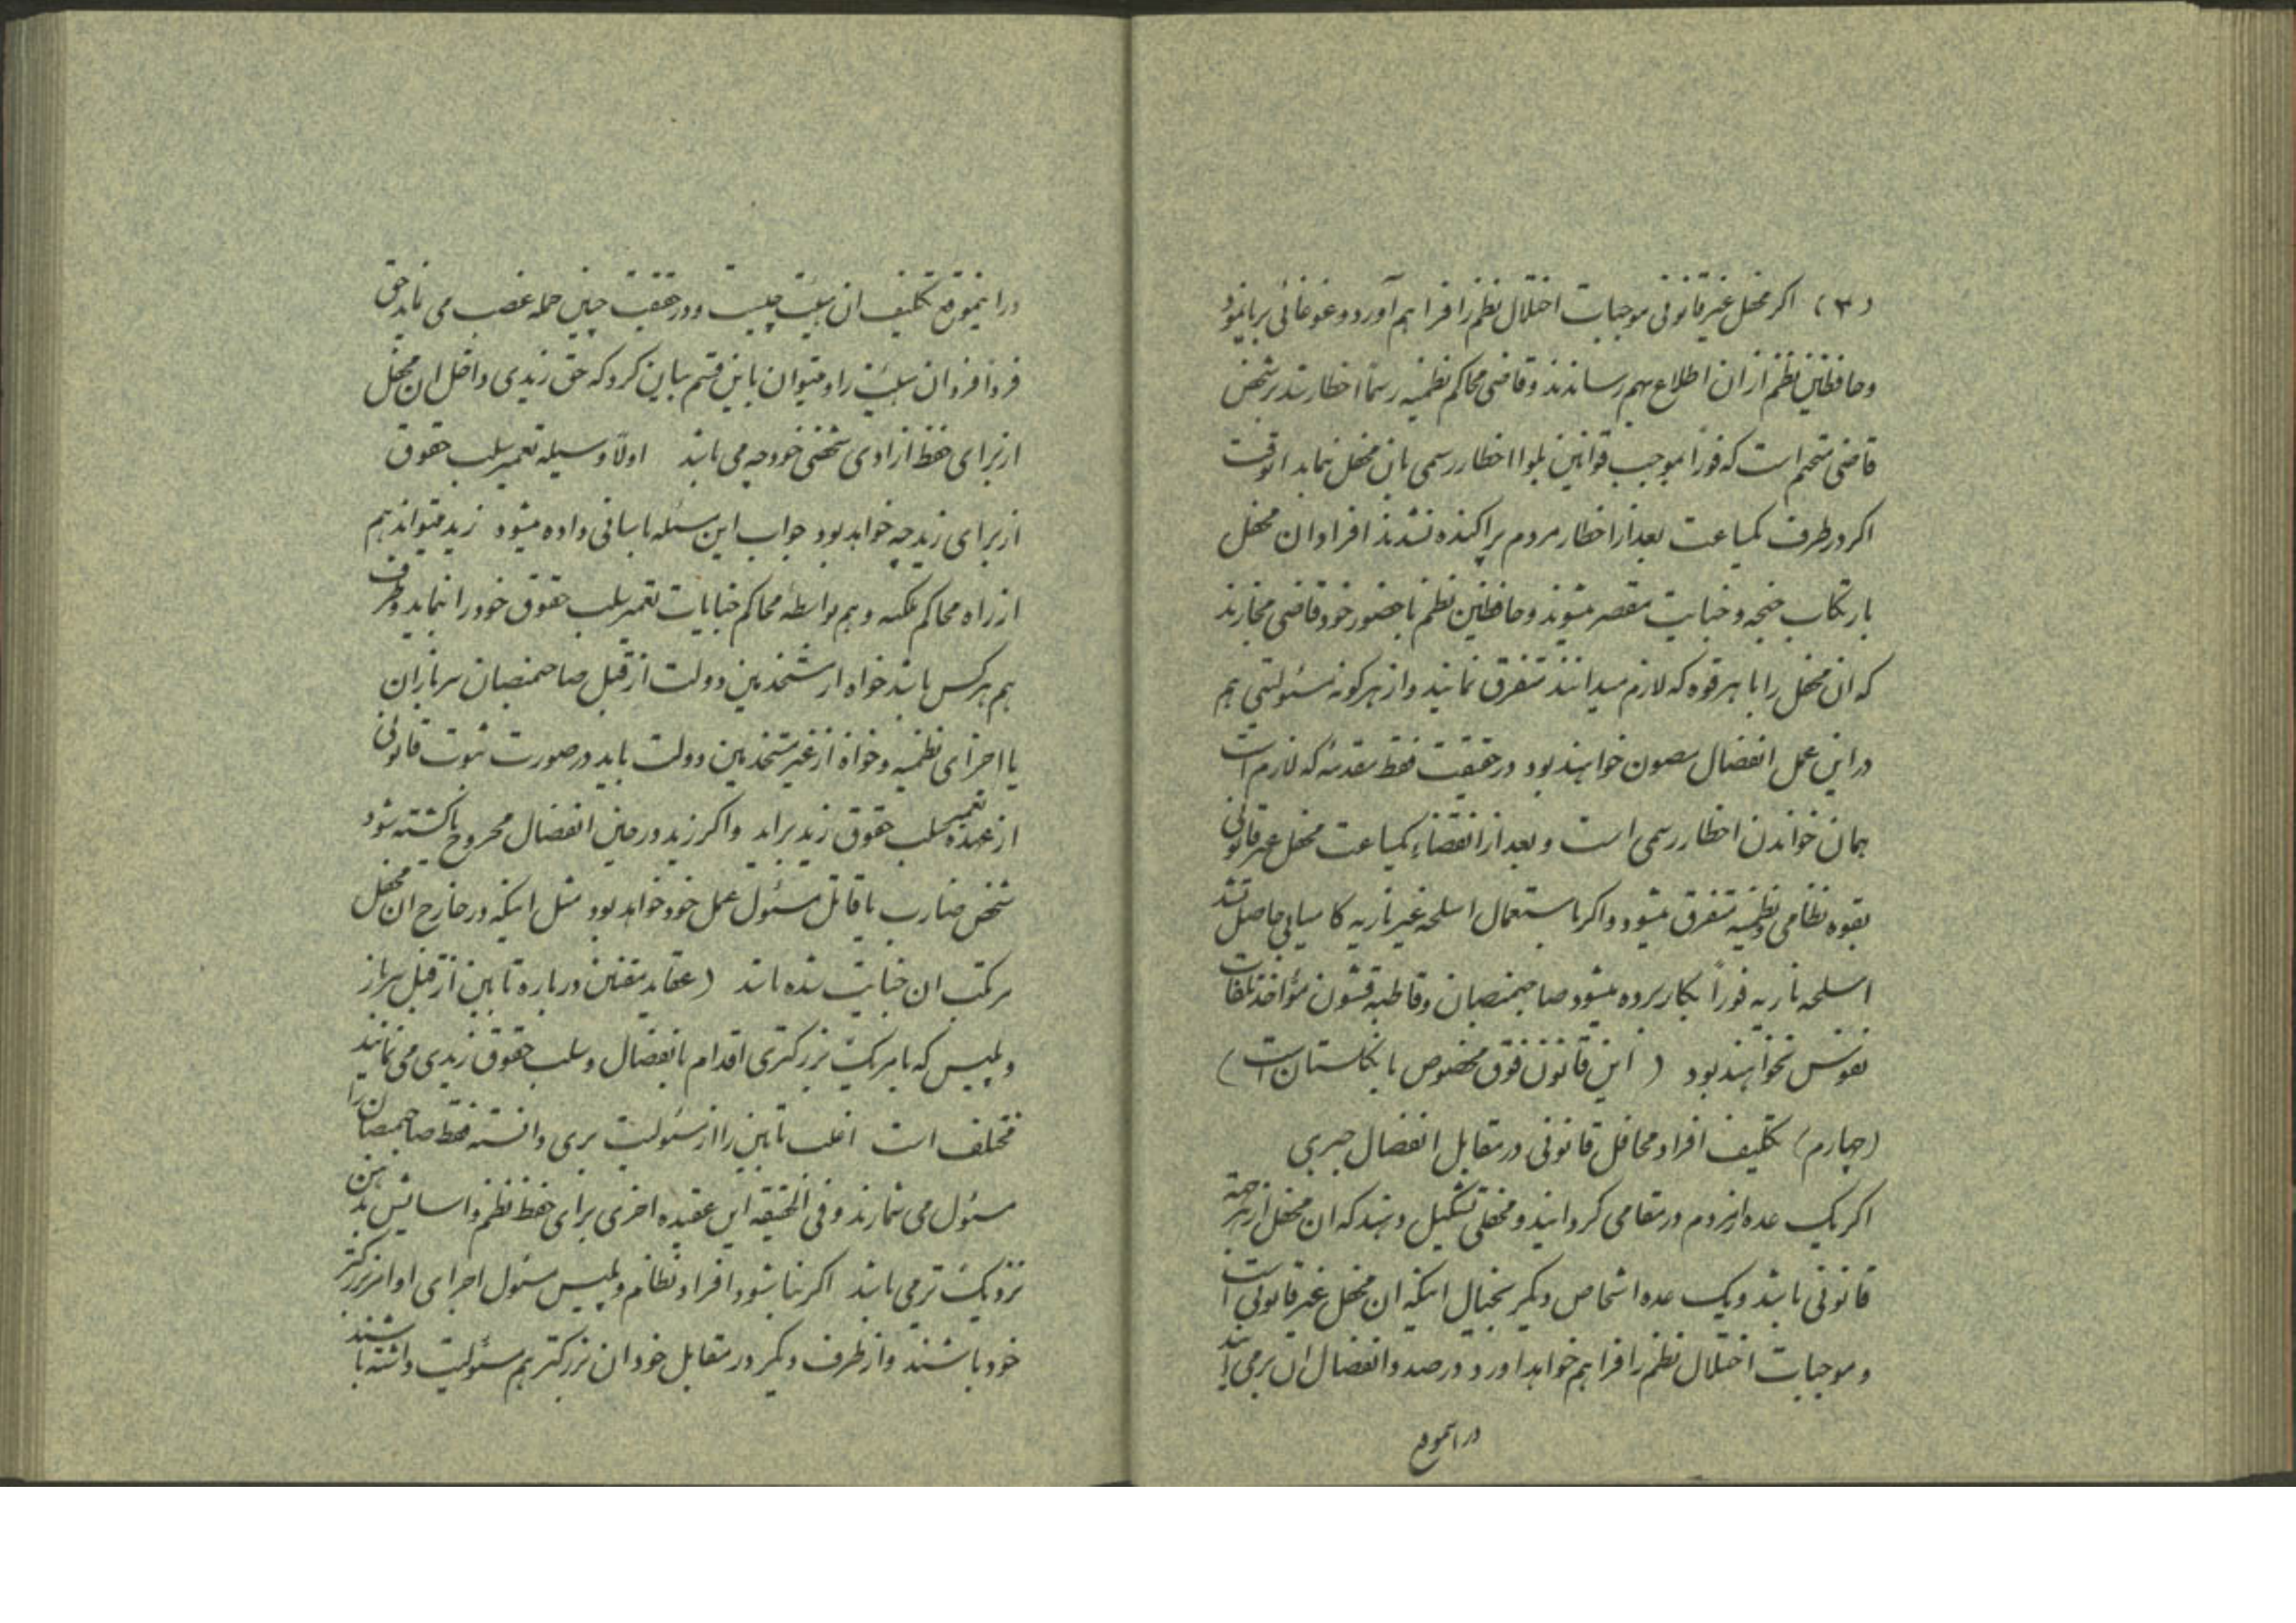 (۳) اکر محفل غیر قانونی موجبات اختلال نظم را فراهم آورد و غوغائی برپا نمود
و حافظین نظم از ان اطلاع بهم رساندند و قاضی محاکم نظمیه رسماً اخطار شد بر شخص
قاضی متحتم است که فوراً بموجب قوانین بلوا اخطار رسمی بان محفل نماید انوقت
اکر در ظرف یکساعت بعد از اخطار مردم پراکنده نشدند افراد ان محفل
بارتکاب جنحه و جنایت مقصر میشوند و حافظین نظم با حضور خود قاضی مجازند
که ان محفل را با هر قوه که لازم میدانند متفرق نمایند و از هر کونه مسئولیتی هم
در این عمل انفصال مصون خواهند بود در حقیقت فقط مقدمه که لازم است
همان خواندن اخطار رسمی است و بعد از انقضاء یکساعت محفل غیر قانونی
بقوه نظامی و نظمیه متفرق میشود و اکر باستعمال اسلحه غیر ناریه کامیابی حاصل نشد
اسلحه ناریه فوراً بکار برده میشود صاحبمنصبان و قاطبه قشون مؤاخذ تلفات
نفوس نخواهند بود ( این قانون فوق مخصوص بانکلستان است )
(چهارم) تکلیف افراد محافل قانونی در مقابل انفصال جبری
اکر یک عده از مردم در مقامی کرد ایند و محفلی تشکیل دهند که ان محفل از هر جهة
قانونی باشد و یک عده اشخاص دیکر بخیال اینکه ان محفل غیر قانونی است
و موجبات اختلال نظم را فراهم خواهد اورد در صدد انفصال ان بر می ایند
در اینموقع
در اینموقع تکلیف ان هیئت چیست و در حقیقت چنین حمله غصب می نماید حق
فرداً فرد ان هیئت را و میتوان باین قسم بیان کرد که حق زیدی داخل ان محفل
از برای حفظ ازادی شخصی خود چه می باشد اولاً وسیله تعمیر سلب حقوق
از برای زید چه خواهد بود جواب این مسئله باسانی داده میشود زید میتواند هم
از راه محاکم ملکیه و هم بواسطه محاکم جنایات تعمیر سلب حقوق خود را بنماید و طرف
هم هر کس باشد خواه از مستخدمین دولت از قبیل صاحبمنصبان سربازان
یا اجزای نظمیه و خواه از غیر مستخدمین دولت باید در صورت ثبوت قانونی
از عهده تعمیر سلب حقوق زید براید و اکر زید در حین انفصال مجروح یا کشته شود
شخص ضارب یا قاتل مسئول عمل خود خواهد بود مثل اینکه در خارج ان محفل
مرتکب ان جنایت شده باشد (عقاید مقننین درباره تابین از قبیل سرباز
و پلیس که بامر یک بزرکتری اقدام بانفصال و سلب حقوق زیدی می نمایند
مختلف است اغلب تابین را از مسئولیت بری دانسته فقط صاحبمنصبان را
مسئول می شمارند و فی الحقیقه این عقیده اخری برای حفظ نظم و اسایش بذهن
نزدیک تر می باشد اکر بنا شود افراد نظام و پلیس مسئول اجرای اوامر بزرکتر
خود باشند و از طرف دیکر در مقابل خود ان بزرکتر هم مسئولیت داشته باشند